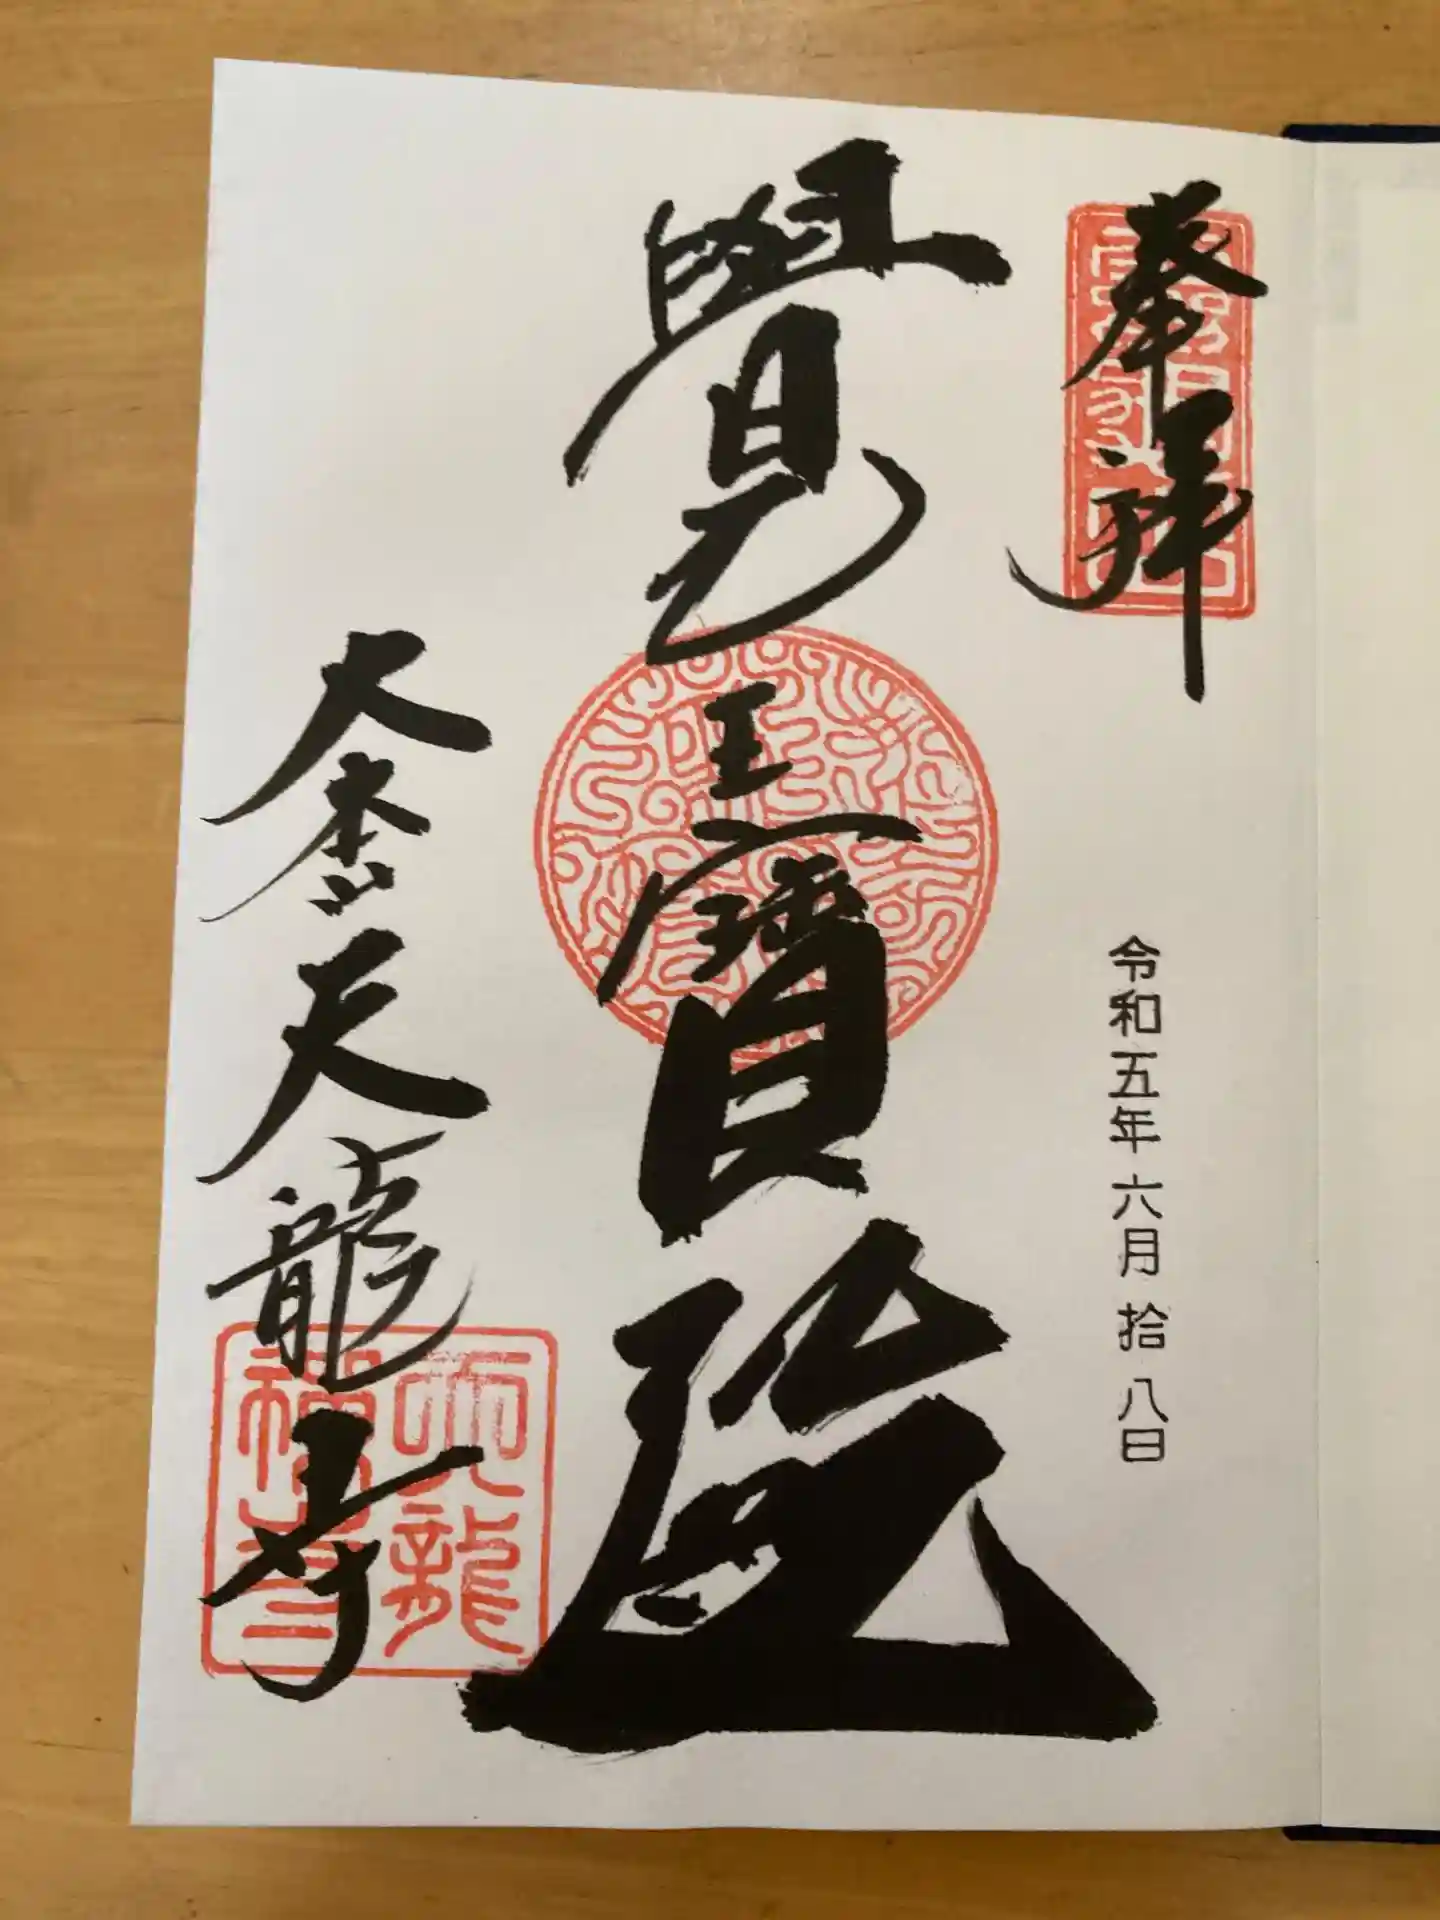 奉拝
令和五年六月拾八日
覺王寶殿
大本山天龍寺
天龍
禅寺